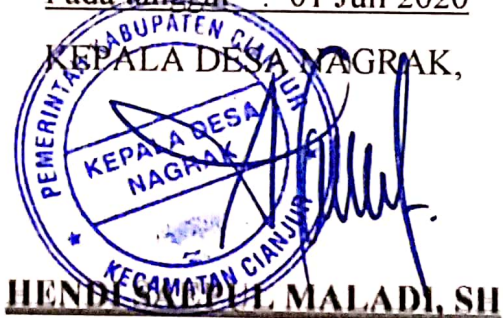 01 Juli 2020
KEPALA DESA NAGRAK,
PEMERINTAH KABUPATEN CIANJUR
KEPALA DESA
NAGRAK
KECAMATAN CIANJUR
HENDI SAEPUL MALADI, SH